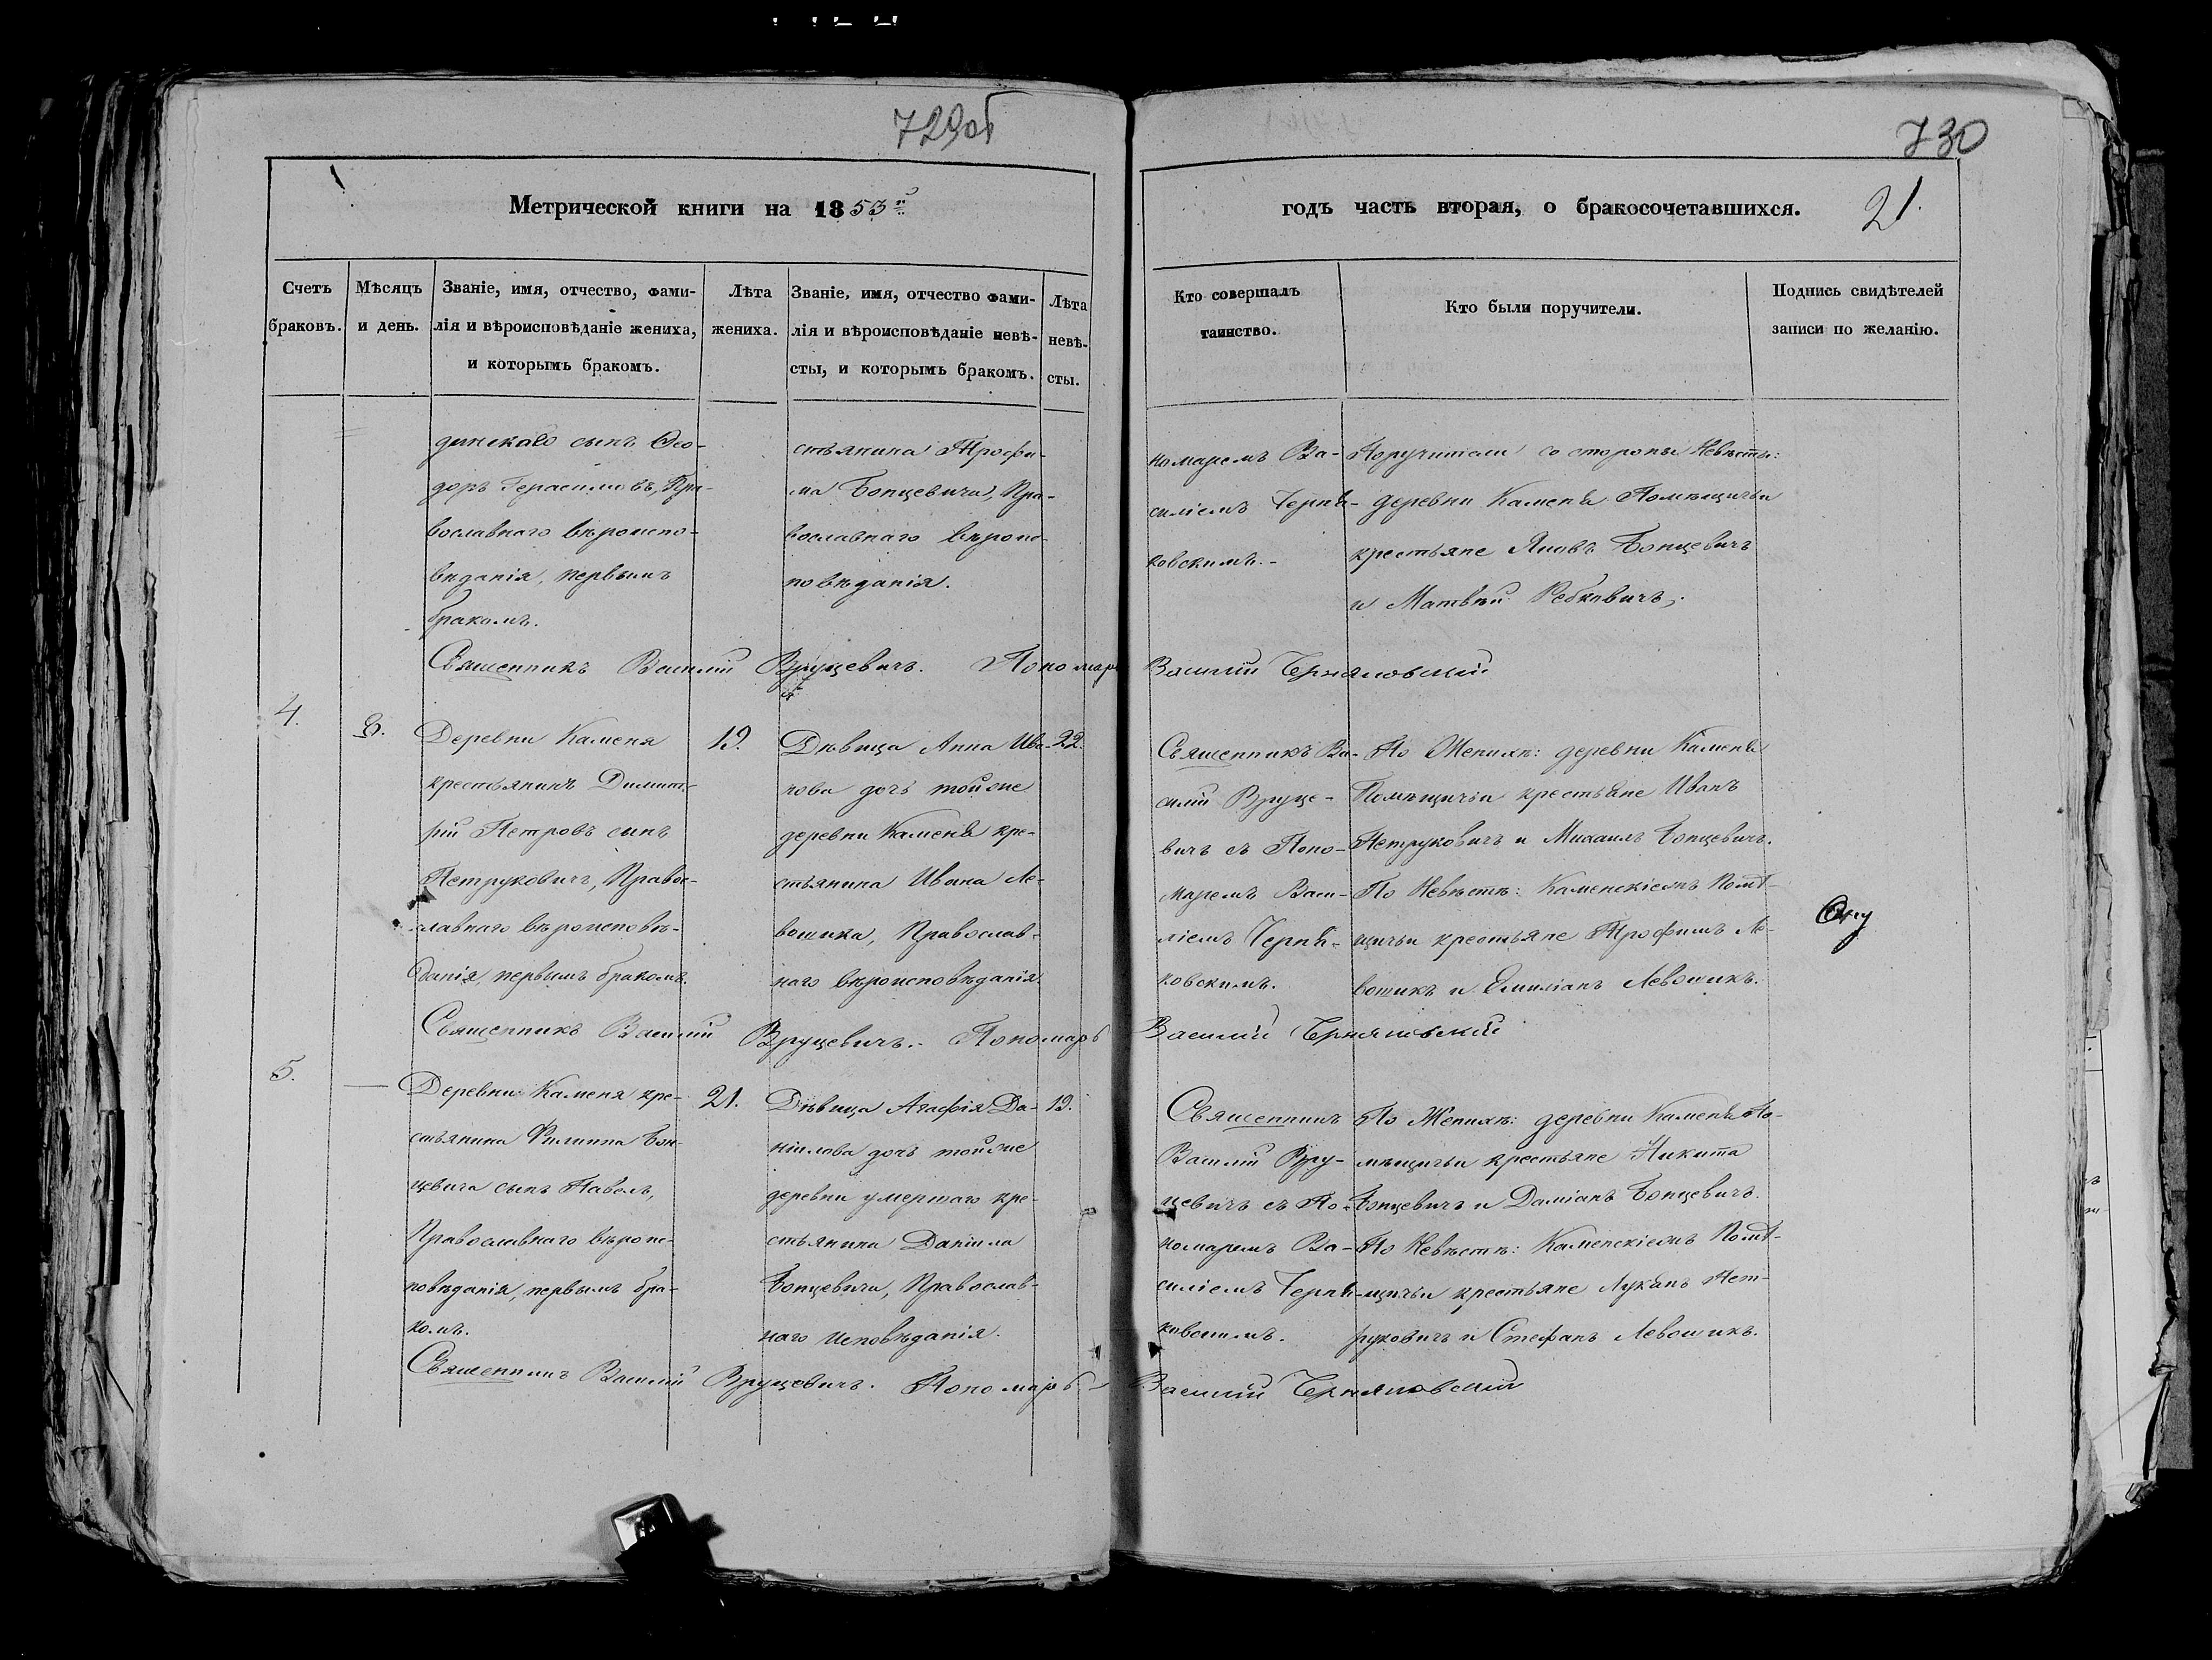 729об
730
Метрической книги на 1853й
годъ часть вторая, о бракосочетавшихся.
21.
Счетъ
браковъ.
Мѣсяцъ
и день.
Званіе, имя, отчество, фами-
лія и вѣроисповѣданіе жениха,
и которымъ бракомъ.
Лѣта
жениха.
Званіе, имя, отчество фами-
лія и вѣроисповѣданіе невѣ-
сты, и которымъ бракомъ.
Лѣта
невѣ-
сты.
Кто совершалъ
таинство.
Кто были поручители.
Подпись свидѣтелей
записи по желанію.
динскаго сынъ Ѳео-
доръ Герасимовъ, Пра-
вославнаго вѣроиспо-
вѣданія, первымъ
бракомъ.
стьянина Трофи-
ма Бонцевича, Пра-
вославнаго вѣроис-
повѣданія.
номаремъ Ва-
силіемъ Черня-
ковскимъ.-
Поручители со стороны Невѣсты:
деревни Каменя Помѣщичьи
крестьяне Яковъ Бонцевичъ
и Матвѣй Ребковичъ;
Священникъ Василій Вруцевичъ. Пономарь Василій Черняковскій
4.
8.
Деревни Каменя
крестьянинъ Димит-
рій Петровъ сынъ
Петруковичъ, Правос-
лавнаго вѣроисповѣ-
данія, первымъ бракомъ.
19.
Дѣвица Анна Ива-
нова дочь тойже
деревни Каменя кре-
стьянина Ивана Ле-
вошика, Православ-
наго вѣроисповѣданія.
22.
Священникъ Ва-
силій Вруце-
вичъ съ Поно-
маремъ Васи-
ліемъ Черня-
ковскимъ.
По Женихѣ: деревни Каменя
Помѣщичьи крестьяне Иванъ
Петруковичъ и Михаилъ Бонцевичъ.
По Невѣстѣ: Каменскіемъ Помѣ-
щичьи крестьяне Трофимъ Ле-
вошикъ и Емиліанъ Левошикъ.
Священникъ Василій Вруцевичъ.- Пономарь Василій Черняковскій
5.
—
Деревни Каменя кре-
стьянина Филиппа Бон-
цевича сынъ Павелъ,
Православнаго вѣроис-
повѣданія, первымъ бра-
комъ.
21.
Дѣвица Агафія Да-
ніилова дочь тойже
деревни умершаго кре-
стьянина Даніила
Бонцевича, Православ-
наго исповѣданія.
19.
Священникъ
Василій Вру-
цевичъ съ По-
номаремъ Ва-
силіемъ Черня-
ковскимъ.
По Женихѣ: деревни Каменя По-
мѣщичьи крестьяне Никита
Бонцевичъ и Даміанъ Бонцевичъ.
По Невѣстѣ: Каменскіемъ Помѣ-
щичьи крестьяне Луканъ Пет-
руковичъ и Стефанъ Левошикъ.
Священникъ Василій Вруцевичъ. Пономарь Василій Черняковскій